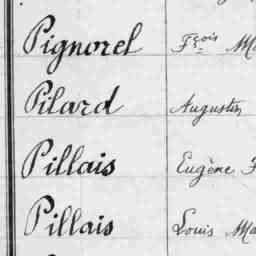 Pignorel Fçois
Pilard Augustin
Pillais Eugène
Pillais Louis